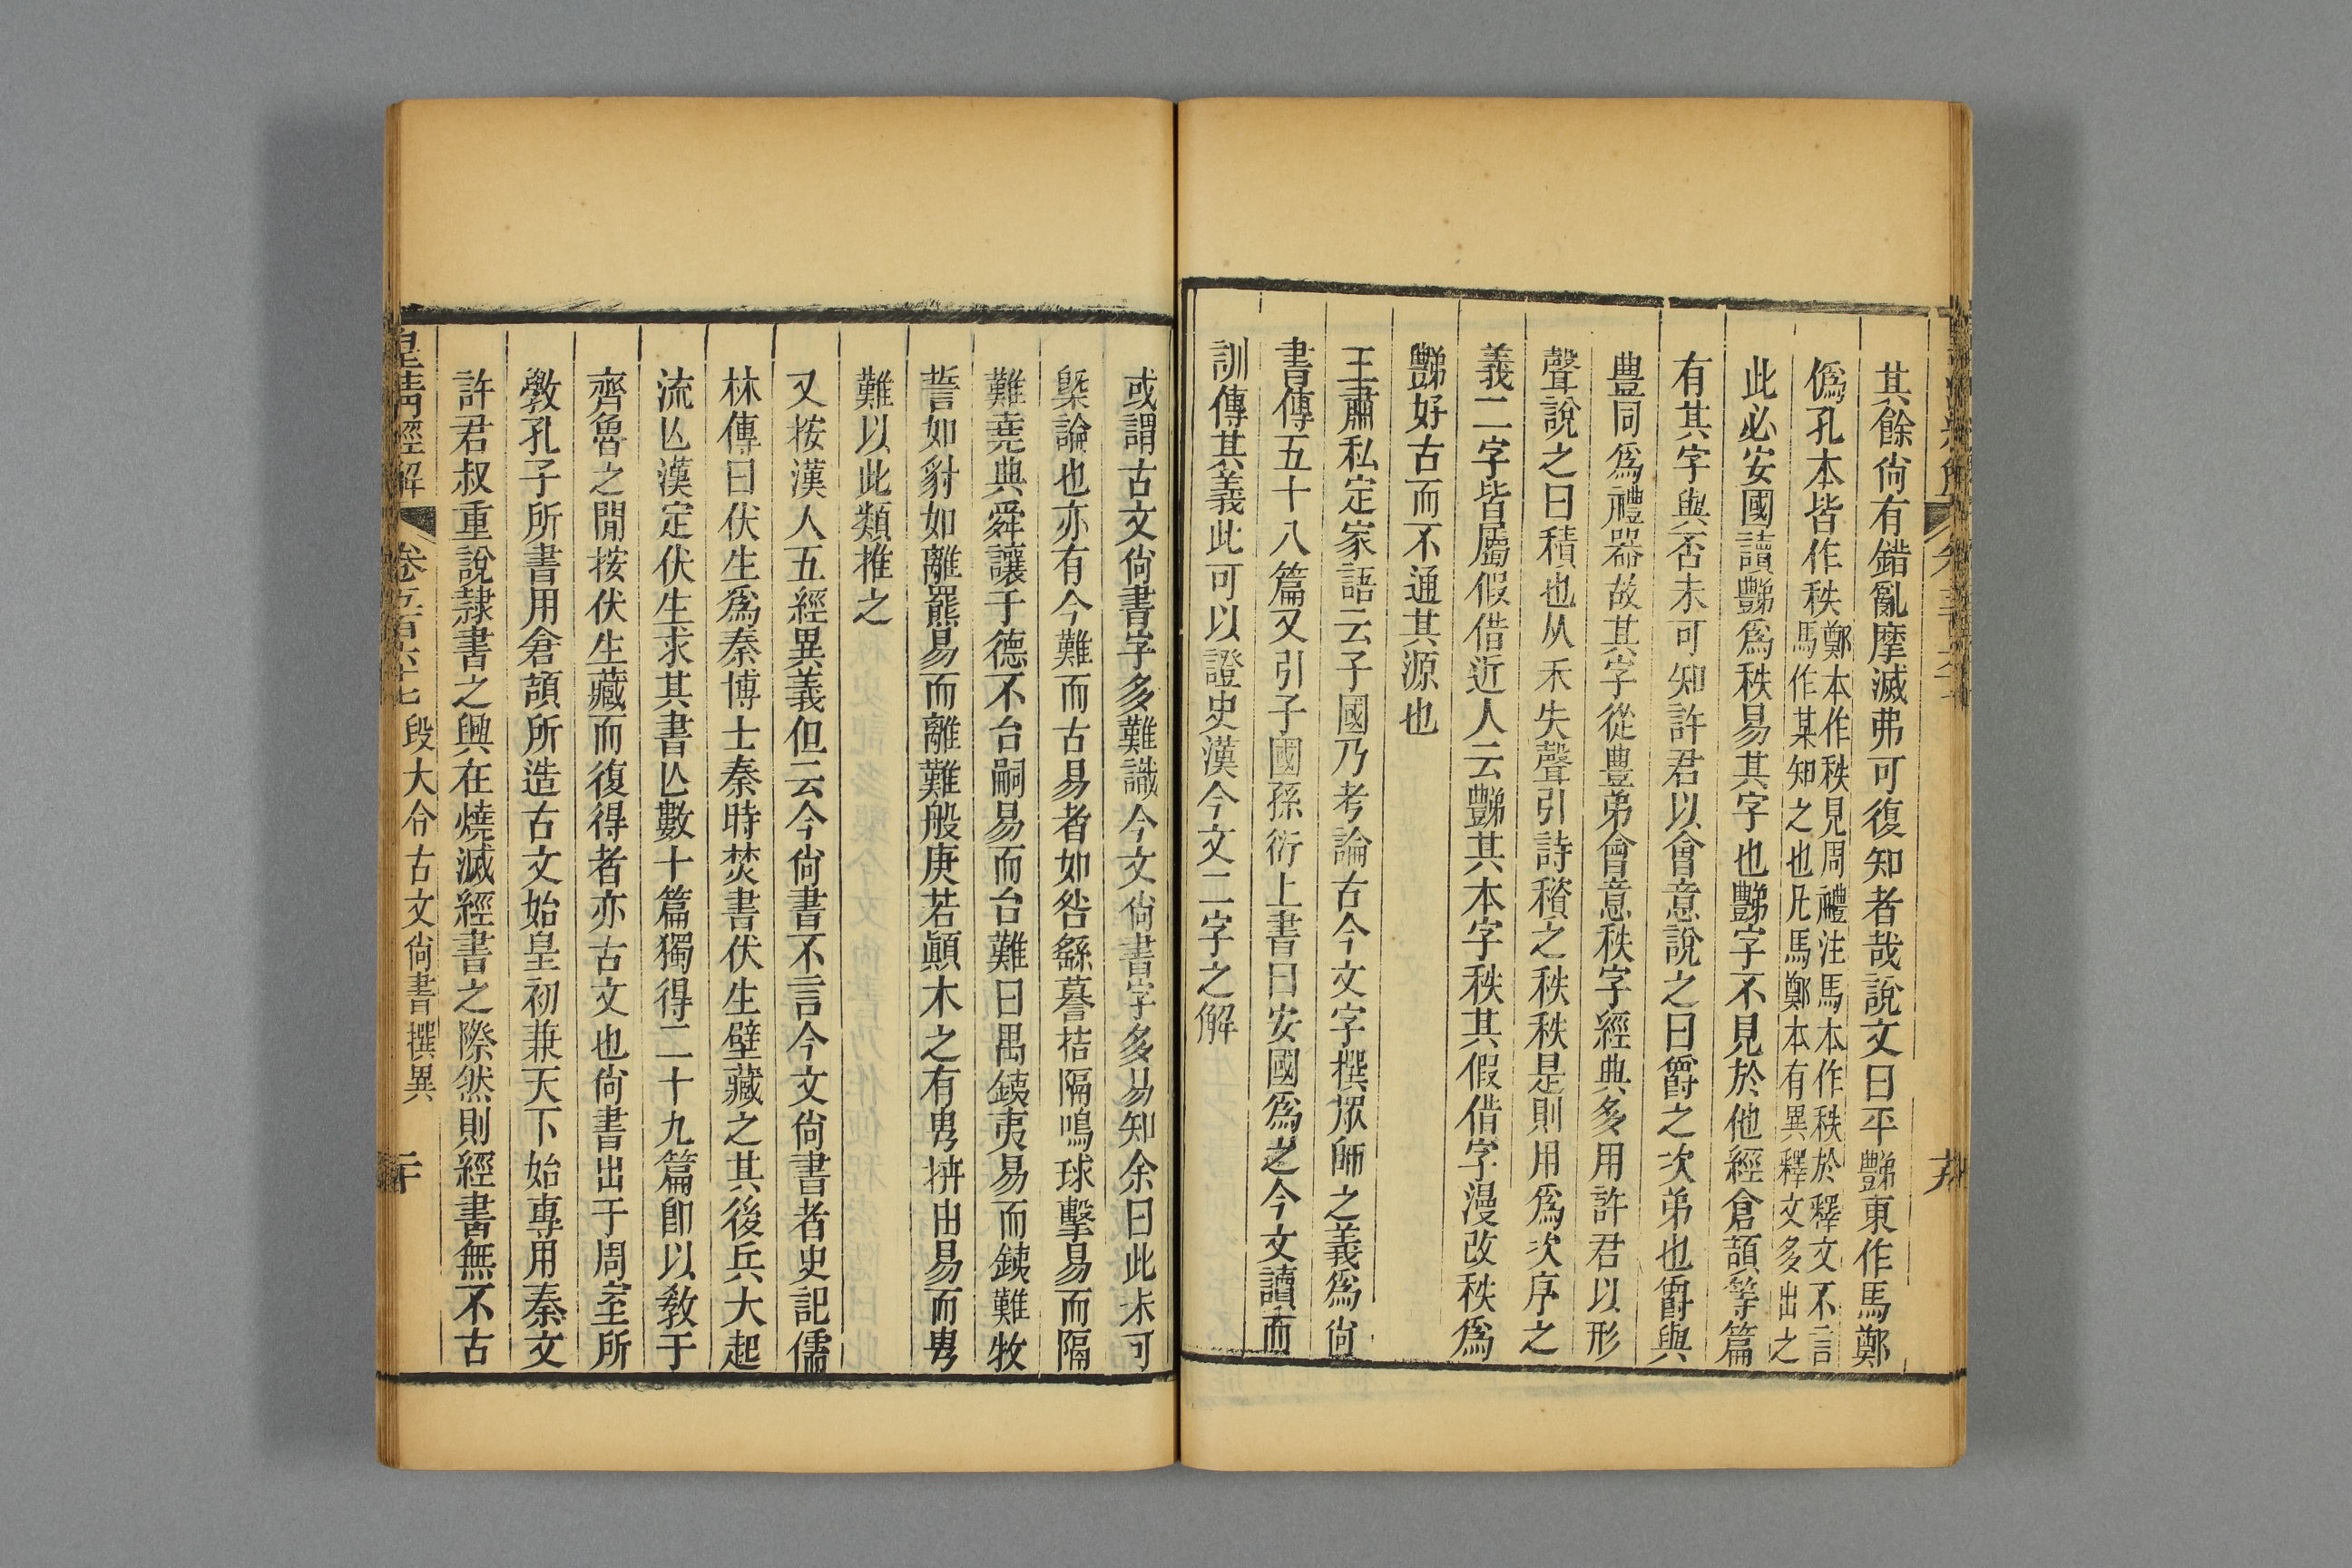 其餘尙有錯亂摩滅弗可復知者哉說文曰平豑東作馬鄭
僞孔本皆作秩鄭本作秩見周禮注馬本作秩於釋文不言
馬作某知之也凡馬鄭本有異釋文多出之
此必安國讀豑爲秩易其字也豑字不見於他經倉頡等篇
有其字與否未可知許君以會意說之曰爵之次弟也爵與
豊同爲禮器故其字從豊弟會意秩字經典多用許君以形
聲說之曰積也从禾失聲引詩稵之秩秩是則用爲次序之
義二字皆屬假借近人云豑其本字秩其假借字漫改秩爲
豑好古而不通其源也
王肅私定家語云子國乃考論古今文字撰眾師之義爲尙
書傳五十八篇又引子國孫衍上書曰安國爲之今文讀而
訓傳其義此可以證史漢今文二字之解
或謂古文尙書字多難識今文尙書字多易知余曰此未可
槩論也亦有今難而古易者如咎繇謩拮隔鳴球擊易而隔
難堯典舜讓于德不台嗣易而台難曰禺銕夷易而銕難牧
誓如豺如離羆易而離難般庚若顚木之有甹枿由易而甹
難以此類推之
又按漢人五經異義但云今尙書不言今文尙書者史記儒
林傳曰伏生爲秦博士秦時焚書伏生壁藏之其後兵大起
流亾漢定伏生求其書亾數十篇獨得二十九篇卽以敎于
齊魯之閒按伏生藏而復得者亦古文也尙書出于周室所
敎孔子所書用倉頡所造古文始皇初兼天下始專用秦文
許君叔重說隸書之興在燒滅經書之際然則經書無不古
皇淸經解 卷五百六十七 段大令古文尙書撰異 二十